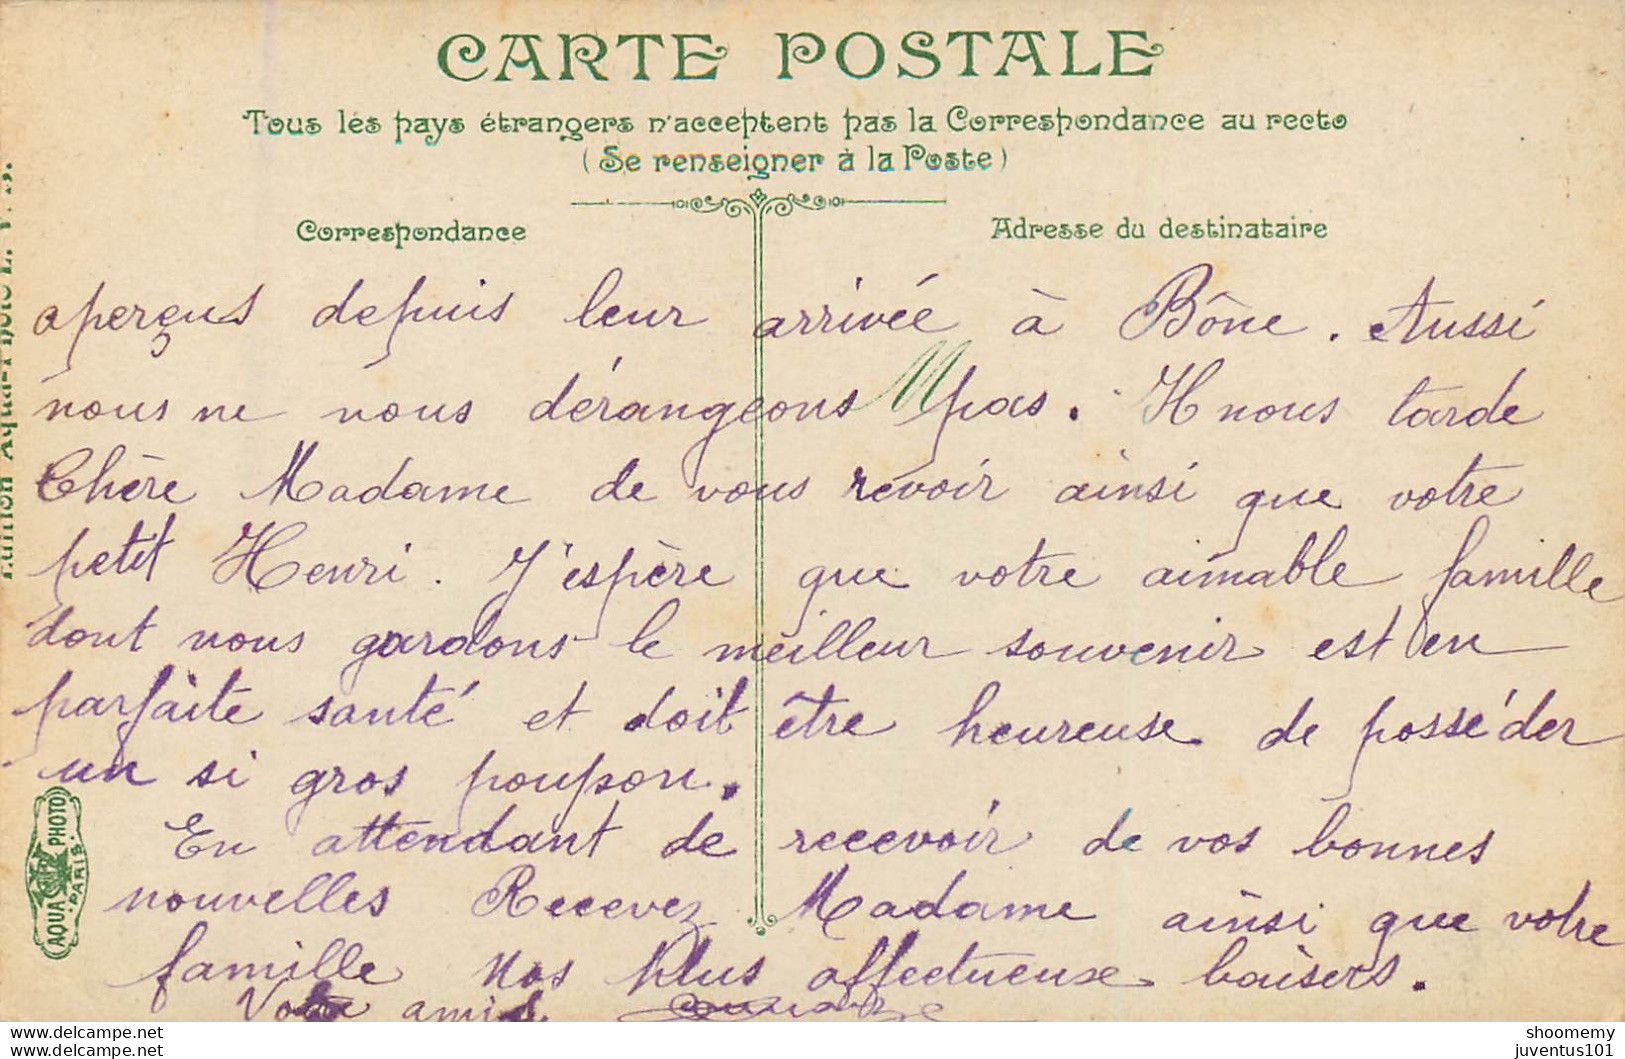 CARTE POSTALE
Tous les pays étrangers n'acceptent pas la Correspondance au recto
(Se renseigner à la Poste)
Correspondance
Adresse du destinataire
aperçus depuis leur arrivée à Bône. Aussi
nous ne nous dérangeons pas. Il nous tarde
Chère Madame de vous revoir ainsi que votre
petit Henri. J'espère que votre aimable famille
dont nous gardons le meilleur souvenir est en
parfaite santé et doit être heureuse de posséder
un si gros poupon.
En attendant de recevoir de vos bonnes
nouvelles Recevez Madame ainsi que votre
famille Nos plus affectueuse baisers.
Votre amie
AQUA PHOTO
PARIS
shoomemy
juventus101